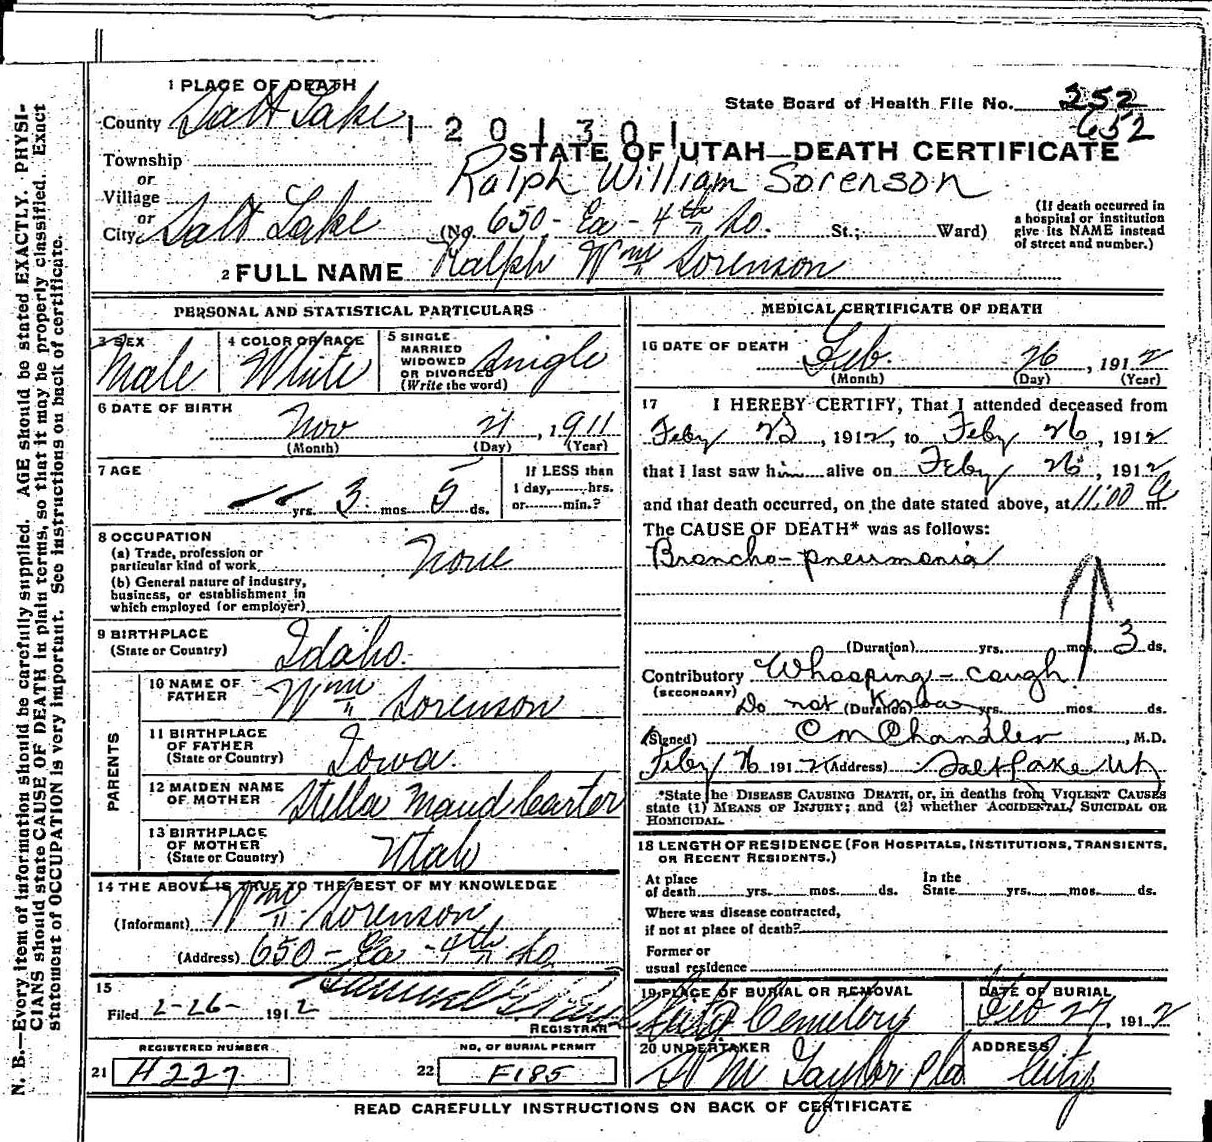 N. B.—Every item of information should be carefully supplied. AGE should be stated EXACTLY. PHYSI-
CIANS should state CAUSE OF DEATH in plain terms, so that it may be properly classified. Exact
statement of OCCUPATION is very important. See instructions on back of certificate.
1 PLACE OF DEATH
County Salt Lake
State Board of Health File No. 252
652
1201301
STATE OF UTAH—DEATH CERTIFICATE
Township
or
Village
Ralph William Sorenson
or
City Salt Lake (No. 650 - Ea - 4th So. St.; Ward)
(If death occurred in
a hospital or institution
give its NAME instead
of street and number.)
2 FULL NAME Ralph Wm Sorenson
PERSONAL AND STATISTICAL PARTICULARS
3 SEX Male
4 COLOR OR RACE White
5 SINGLE
MARRIED
WIDOWED
OR DIVORCED
(Write the word) Single
6 DATE OF BIRTH
Nov 21, 1911
(Month) (Day) (Year)
7 AGE
yrs. 3 mos. 5 ds.
If LESS than
1 day, hrs.
or min.?
8 OCCUPATION
(a) Trade, profession or
particular kind of work None
(b) General nature of industry,
business, or establishment in
which employed (or employer)
9 BIRTHPLACE
(State or Country) Idaho.
PARENTS
10 NAME OF
FATHER Wm Sorenson
11 BIRTHPLACE
OF FATHER
(State or Country) Iowa.
12 MAIDEN NAME
OF MOTHER Stella Maud Carter
13 BIRTHPLACE
OF MOTHER
(State or Country) Utah
14 THE ABOVE IS TRUE TO THE BEST OF MY KNOWLEDGE
(Informant) Wm Sorenson
(Address) 650 - Ea - 4th So.
15
Filed 2-26- 1912 Samuel G
REGISTRAR
REGISTERED NUMBER
21 H227
NO. OF BURIAL PERMIT
22 F185
MEDICAL CERTIFICATE OF DEATH
16 DATE OF DEATH Feb. 26, 1912
(Month) (Day) (Year)
17 I HEREBY CERTIFY, That I attended deceased from
Feby 23, 1912, to Feby 26, 1912
that I last saw him alive on Feby 26, 1912
and that death occurred, on the date stated above, at 11:00 a m.
The CAUSE OF DEATH* was as follows:
Broncho-pneumonia
(Duration) yrs. mos. 3 ds.
Contributory Whooping-cough
(SECONDARY)
Do not Know (Duration) yrs. mos. ds.
(Signed) C M Chandler, M.D.
Feby 26 1912 (Address) Salt Lake Ut
*State the DISEASE CAUSING DEATH, or, in deaths from VIOLENT CAUSES
state (1) MEANS OF INJURY; and (2) whether ACCIDENTAL, SUICIDAL OR
HOMICIDAL.
18 LENGTH OF RESIDENCE (FOR HOSPITALS, INSTITUTIONS, TRANSIENTS,
OR RECENT RESIDENTS.)
At place
of death yrs. mos. ds.
In the
State yrs. mos. ds.
Where was disease contracted,
if not at place of death?
Former or
usual residence
19 PLACE OF BURIAL OR REMOVAL
City Cemetery
DATE OF BURIAL
Feb 27, 1912
20 UNDERTAKER
S M Taylor &co
ADDRESS
City
READ CAREFULLY INSTRUCTIONS ON BACK OF CERTIFICATE